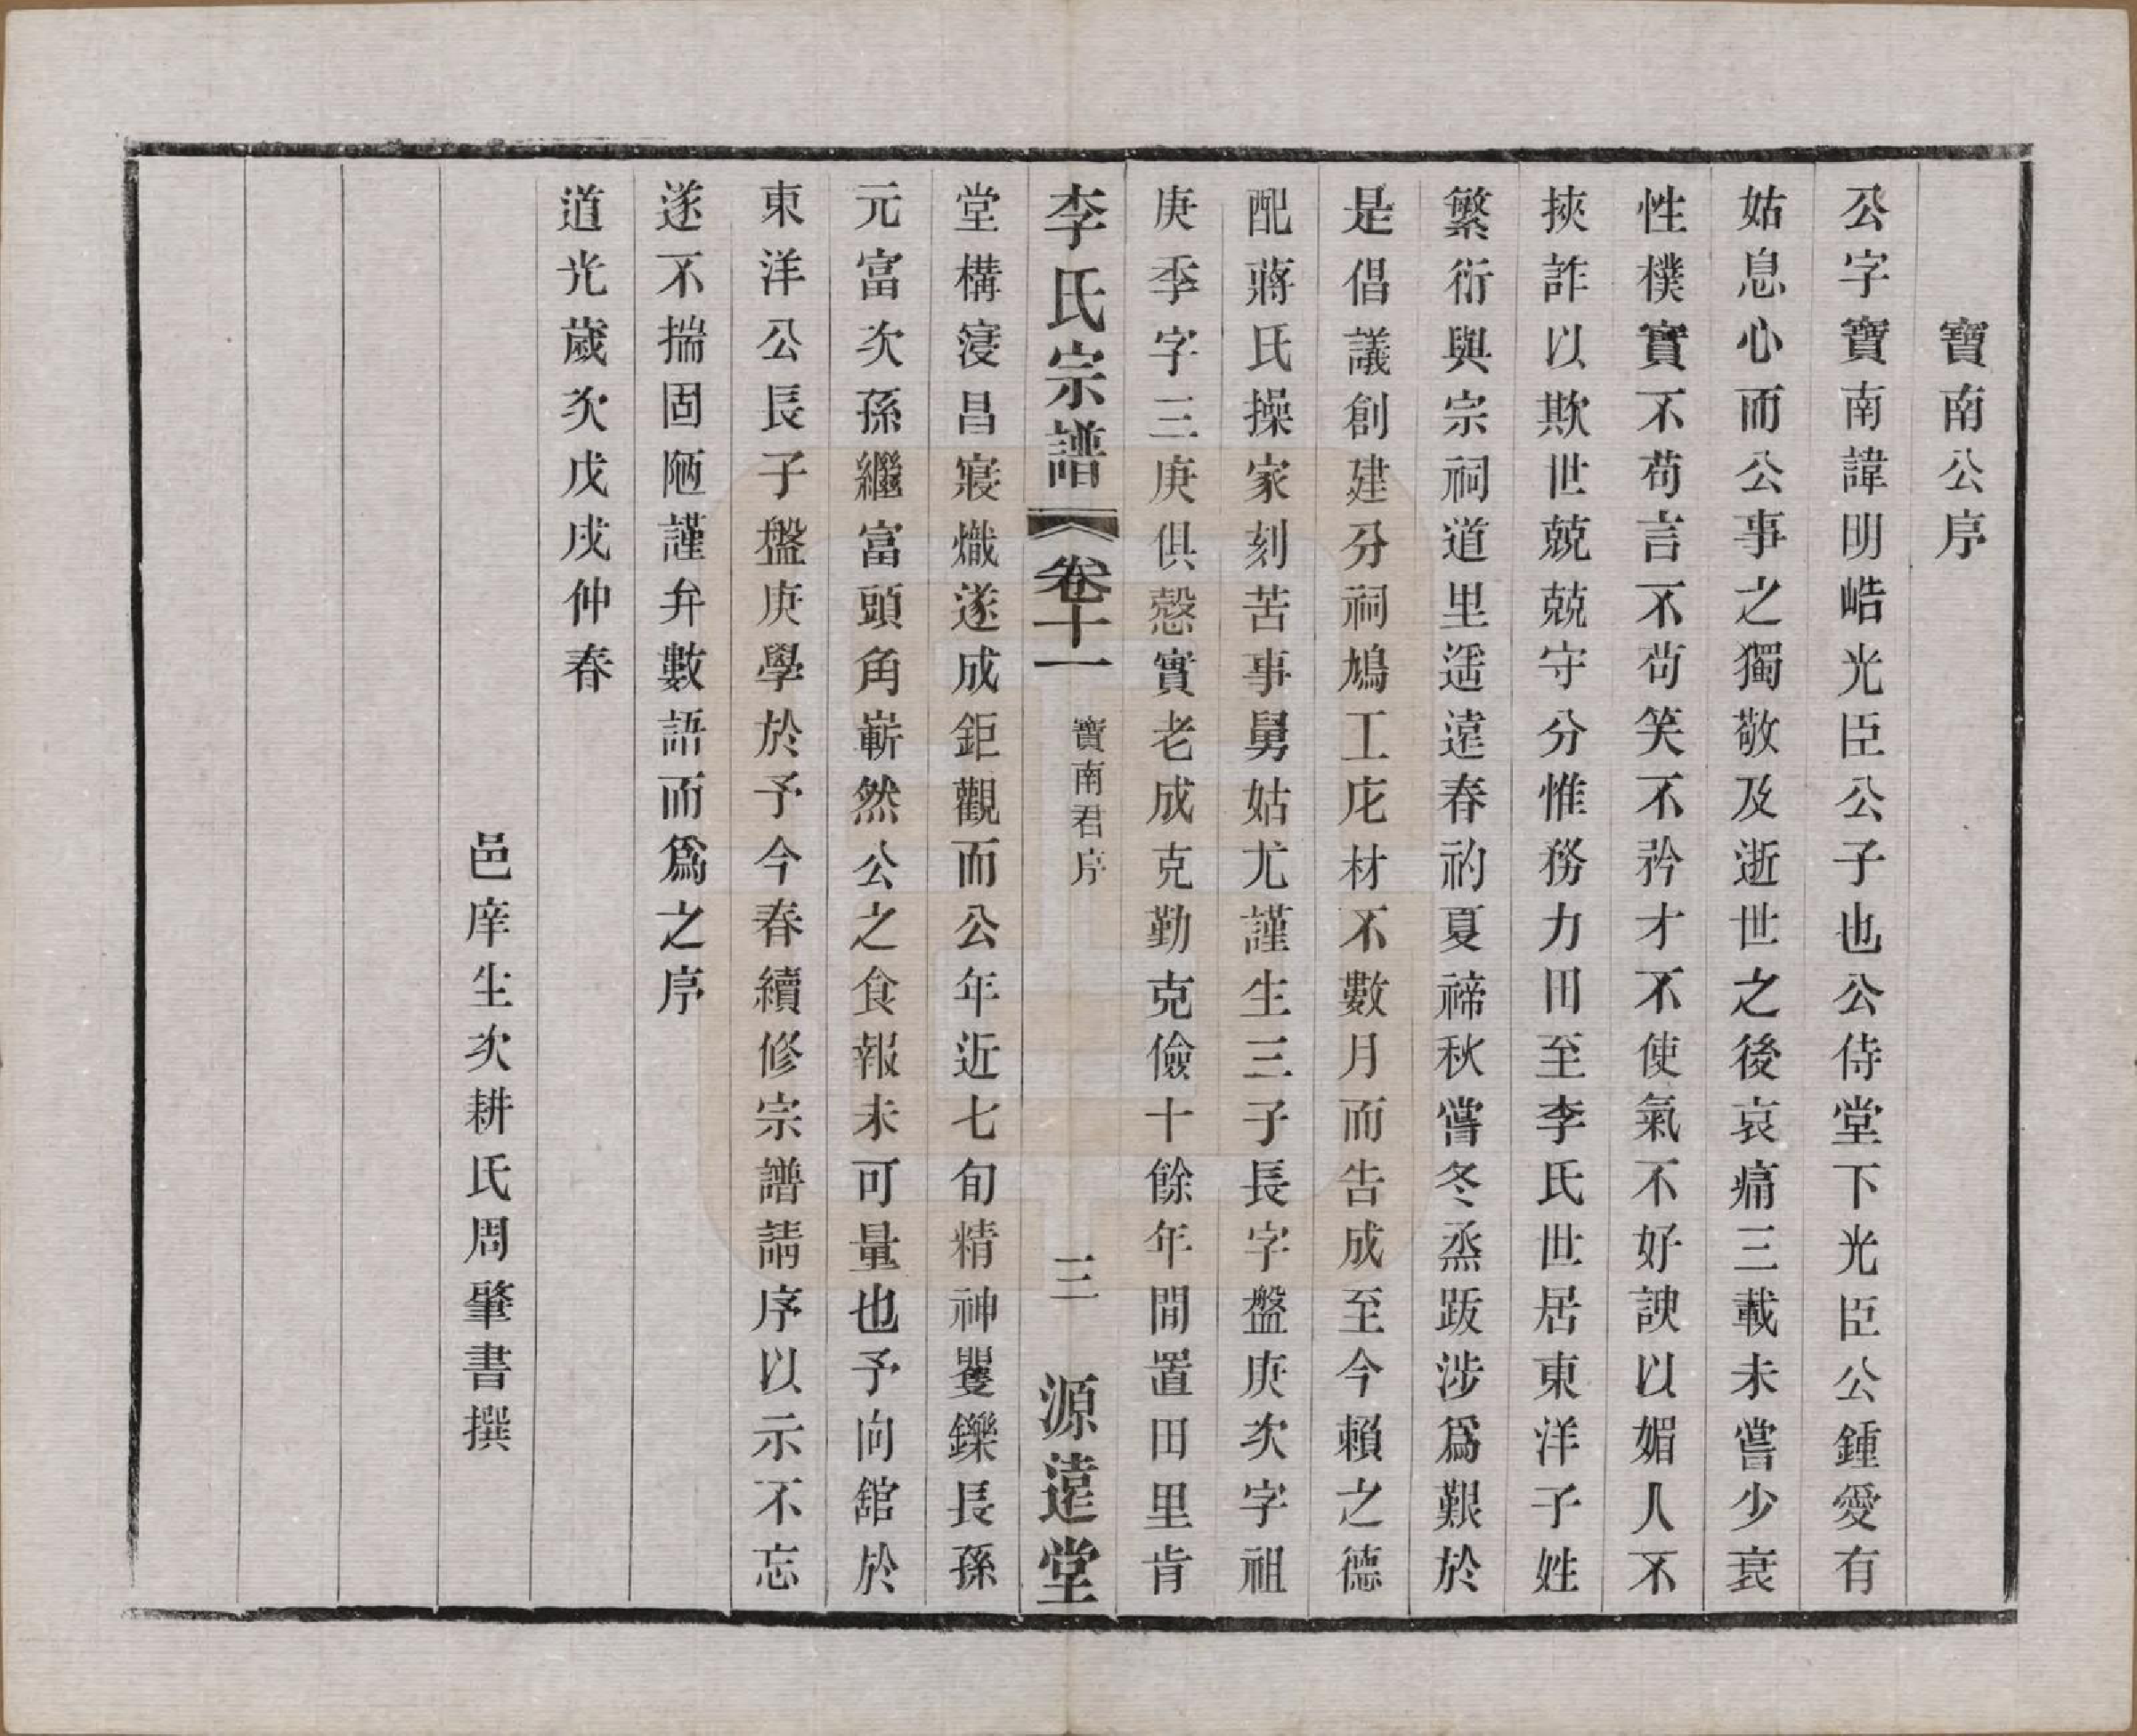 寶南公序
公字寶南諱明皓光臣公子也公侍堂下光臣公鍾愛有
姑息心而公事之獨敬及逝世之後哀痛三載未嘗少衰
性樸實不苟言不苟笑不矜才不使氣不好諛以媚人不
挾詐以欺世兢兢守分惟務力田至李氏世居東洋子姓
繁衍與宗祠道里遥遠春礿夏禘秋嘗冬烝跋涉爲艱於
是倡議創建分祠鳩工庀材不數月而告成至今賴之德
配蔣氏操家刻苦事舅姑尤謹生三子長字盤庚次字祖
庚季字三庚俱慤實老成克勤克儉十餘年間置田里肯
李氏宗譜 卷十一 寶南君序 三 源遠堂
堂構寖昌寖熾遂成鉅觀而公年近七旬精神矍鑠長孫
元富次孫繼富頭角嶄然公之食報未可量也予向舘於
東洋公長子盤庚學於予今春續修宗譜請序以示不忘
遂不揣固陋謹弁數語而爲之序
道光歲次戊戌仲春
邑庠生次耕氏周肇書撰